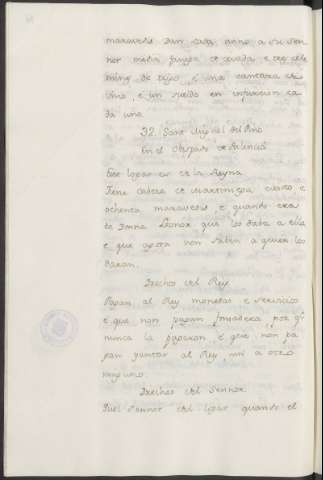 maravedis dan cada anno a su sen
nor media fanega de cevada e tres cele
mines de trigo, e una cantara de
vino, e un sueldo en infurcion ca
da uno
32. Sant Miguel del Pino
En el Obispado de Palencia
Este logar es de la Reyna
Tiene cabeza de martiniega ciento e
ochenta maravedis e quando era
de Donna Leonor que los daba a ella
e que agora non saben a quien los
daran.
Drechos del Rey
Pagan al Rey monedas e servicios
e que non pagan fonsadera, por q̃
nunca la pagaron, e que non pa
gan yantar al Rey, nin a otro
ninguno.
Drechos del Sennor
Que Sennor del logar quando el